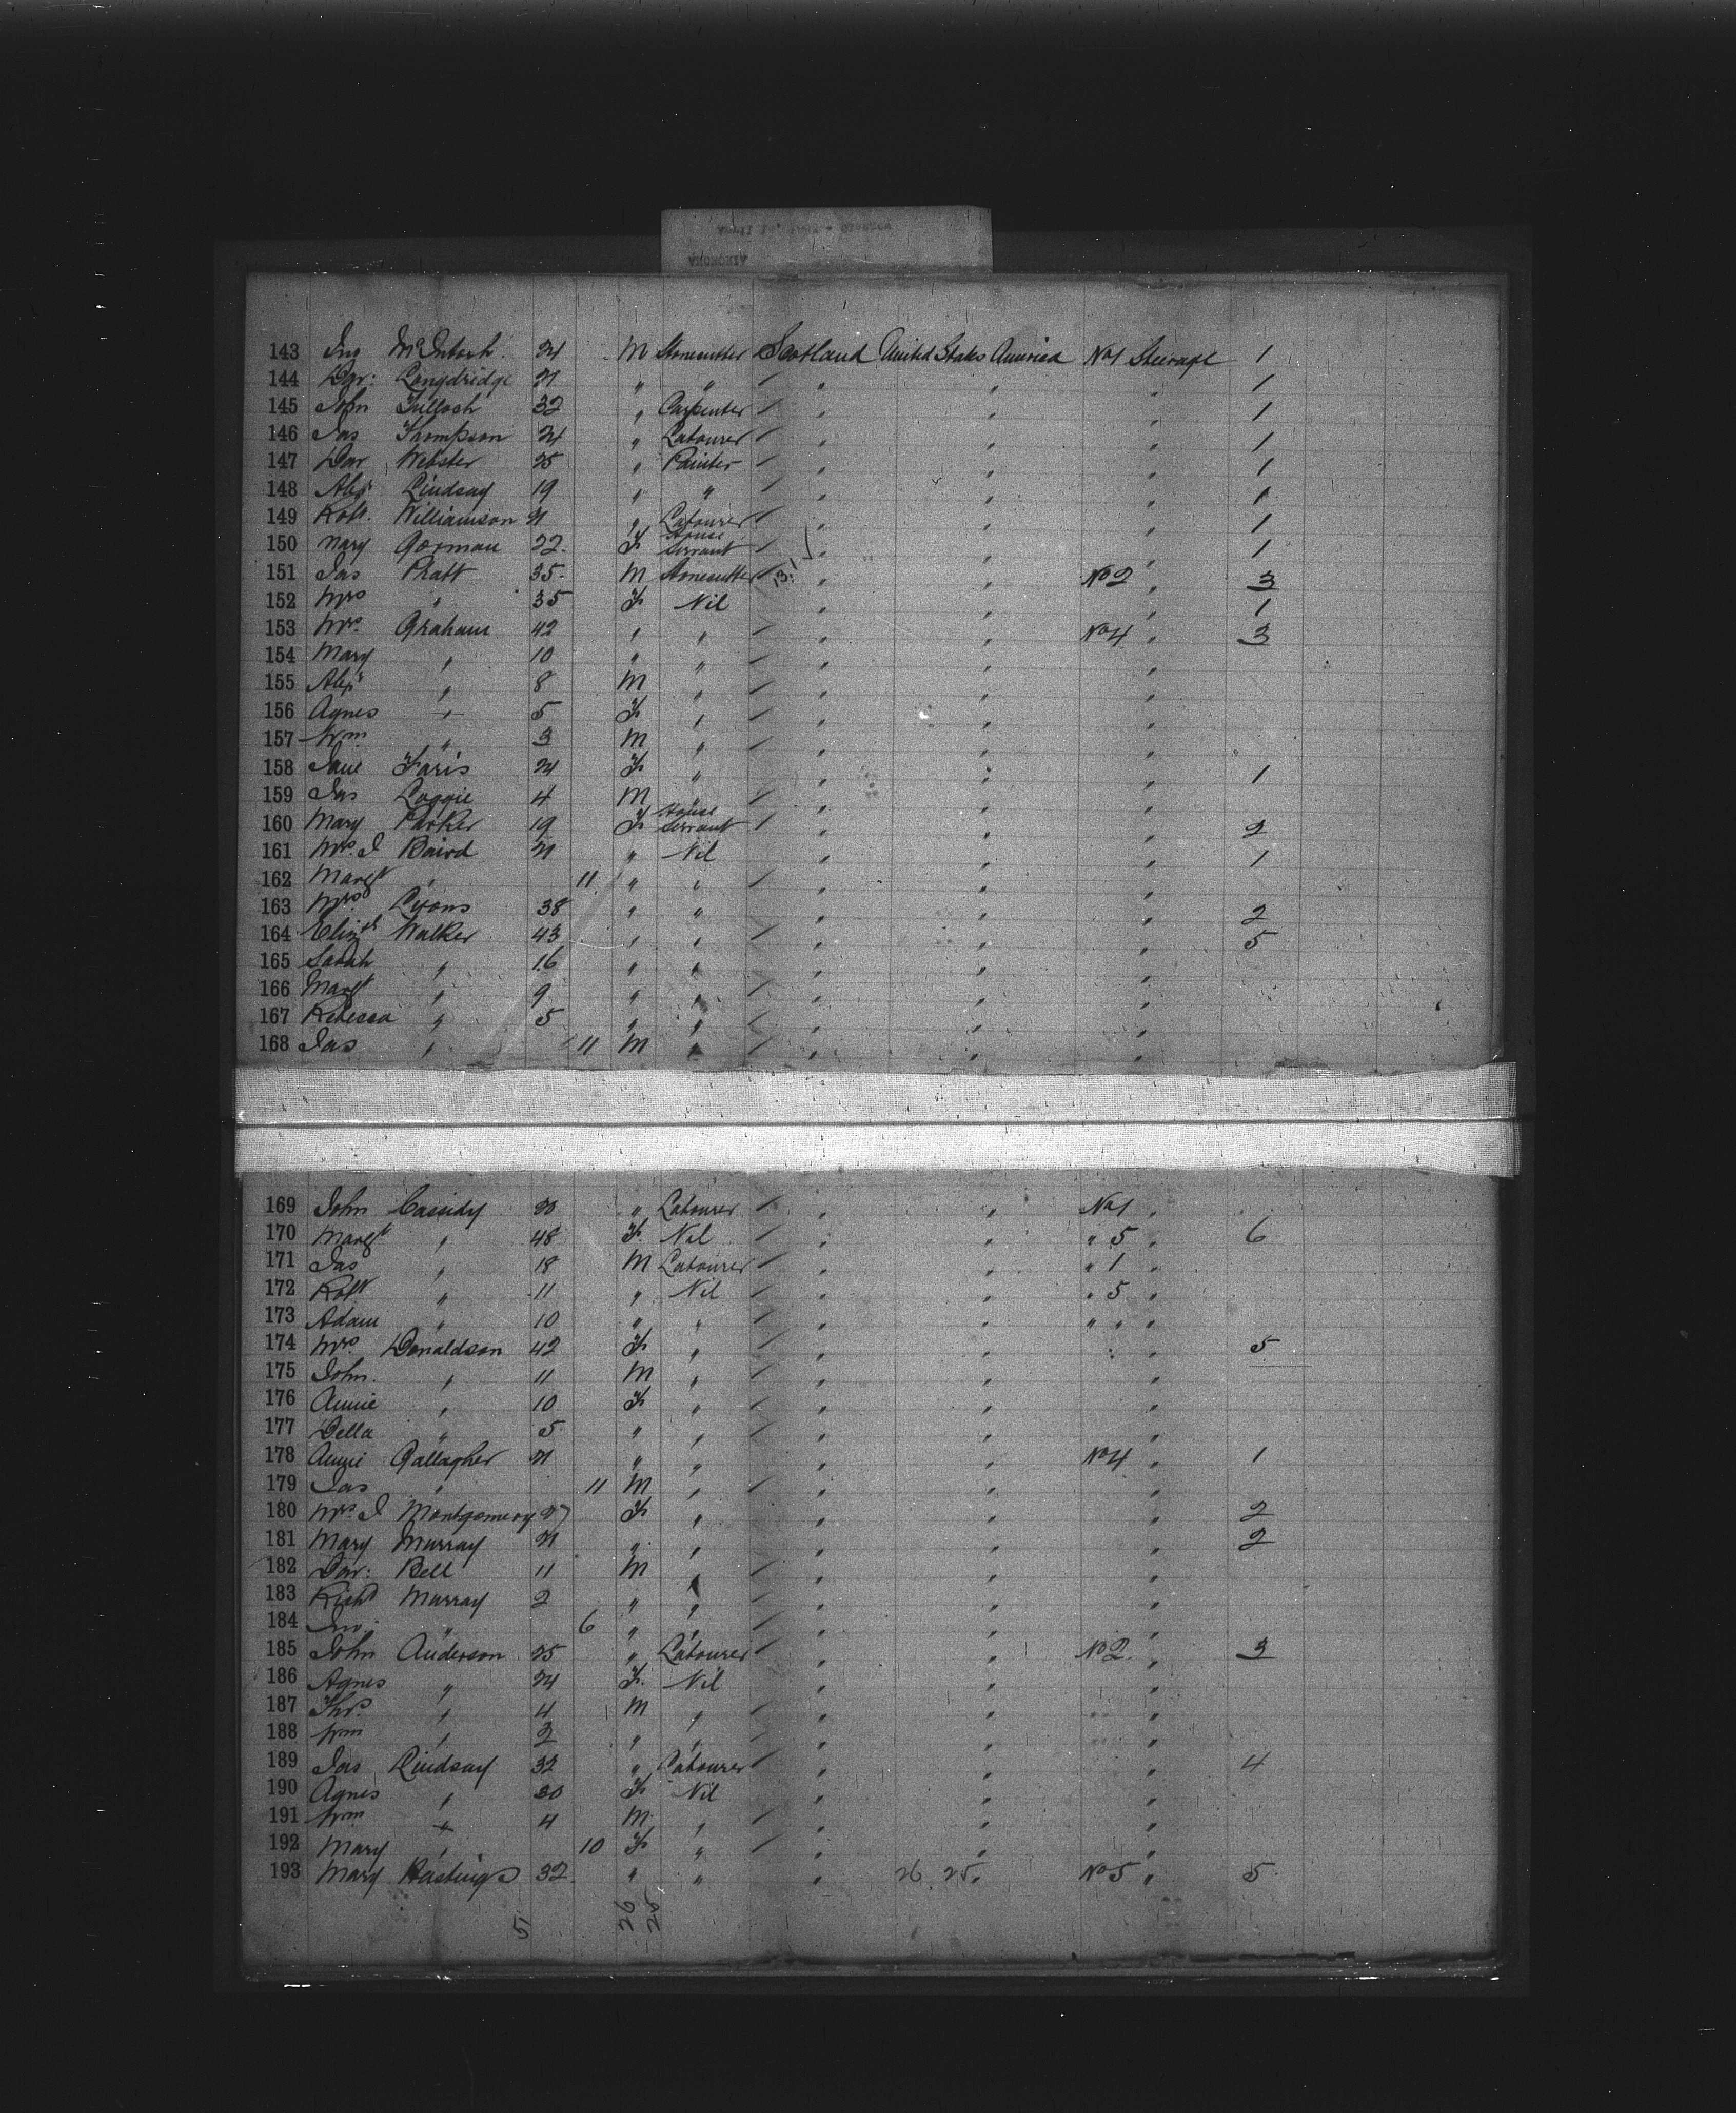 143 Jno McIntosh 24 M Stonecutter Scotland United States America No1 Steerage 1
144 Dav: Longdridge 21 " " " " " 1
145 John Tulloch 32 " Carpenter " " " 1
146 Jas Thompson 24 " Labourer " " " 1
147 Dav Webster 25 " Painter " " " 1
148 Alexr Lindsay 19 " " " " " 1
149 Robt. Williamson 21 " Labourer " " " 1
150 Mary Gorman 22 F House Servant " " " 1
151 Jas Pratt 35 M Stonecutter " " No2 " 3
152 Mrs " 35 F Nil " " " 1
153 Mrs. Graham 42 " " " " No4 " 3
154 Mary " 10 " " " " "
155 Alexr " 8 M " " " "
156 Agnes " 5 F " " " "
157 Wm " 3 M " " " "
158 Jane Faris 24 F " " " " 1
159 Jas Loggie 4 M " " " "
160 Mary Parker 19 F House Servant " " " 2
161 Mrs. J Baird 21 " Nil " " " 1
162 Margt " 11 " " " " "
163 Mrs. Lyons 38 " " " " " 2
164 Elizth Walker 43 " " " " " 5
165 Sarah " 16 " " " " "
166 Margt " 9 " " " " "
167 Rebecca " 5 " " " " "
168 Jas " 11 M " " " "
169 John Cassidy 20 " Labourer " " No1 "
170 Margt " 48 F. Nil " " " 5 " 6
171 Jas " 18 M Labourer " " " 1 "
172 Robt " 11 " Nil " " " 5 "
173 Adam " 10 " " " " " " "
174 Mrs. Donaldson 42 F " " " " 5
175 John. " 11 M " " " "
176 Annie " 10 F " " " "
177 Bella " 5 " " " " "
178 Annie Gallagher 21 " " " " No4 " 1
179 Jas " 11 M " " " "
180 Mrs. J Montgomery 27 F " " " " 2
181 Mary Murray 21 " " " " " 2
182 Dav: Bell 11 M " " " "
183 Richd Murray 2 " " " " "
184 Jno. " 6 " " " " "
185 John Anderson 25 " Labourer " " No2 " 3
186 Agnes " 24 F. Nil " " "
187 Thos. " 4 M " " " "
188 Wm " 2 " " " " "
189 Jas Lindsay 32 " Labourer " " " 4
190 Agnes " 30 F Nil " " "
191 Wm " 4 M. " " " "
192 Mary " 10 F " " " "
193 Mary Hastings 32 " " " 26 25 " No5 " 5
5 26 25